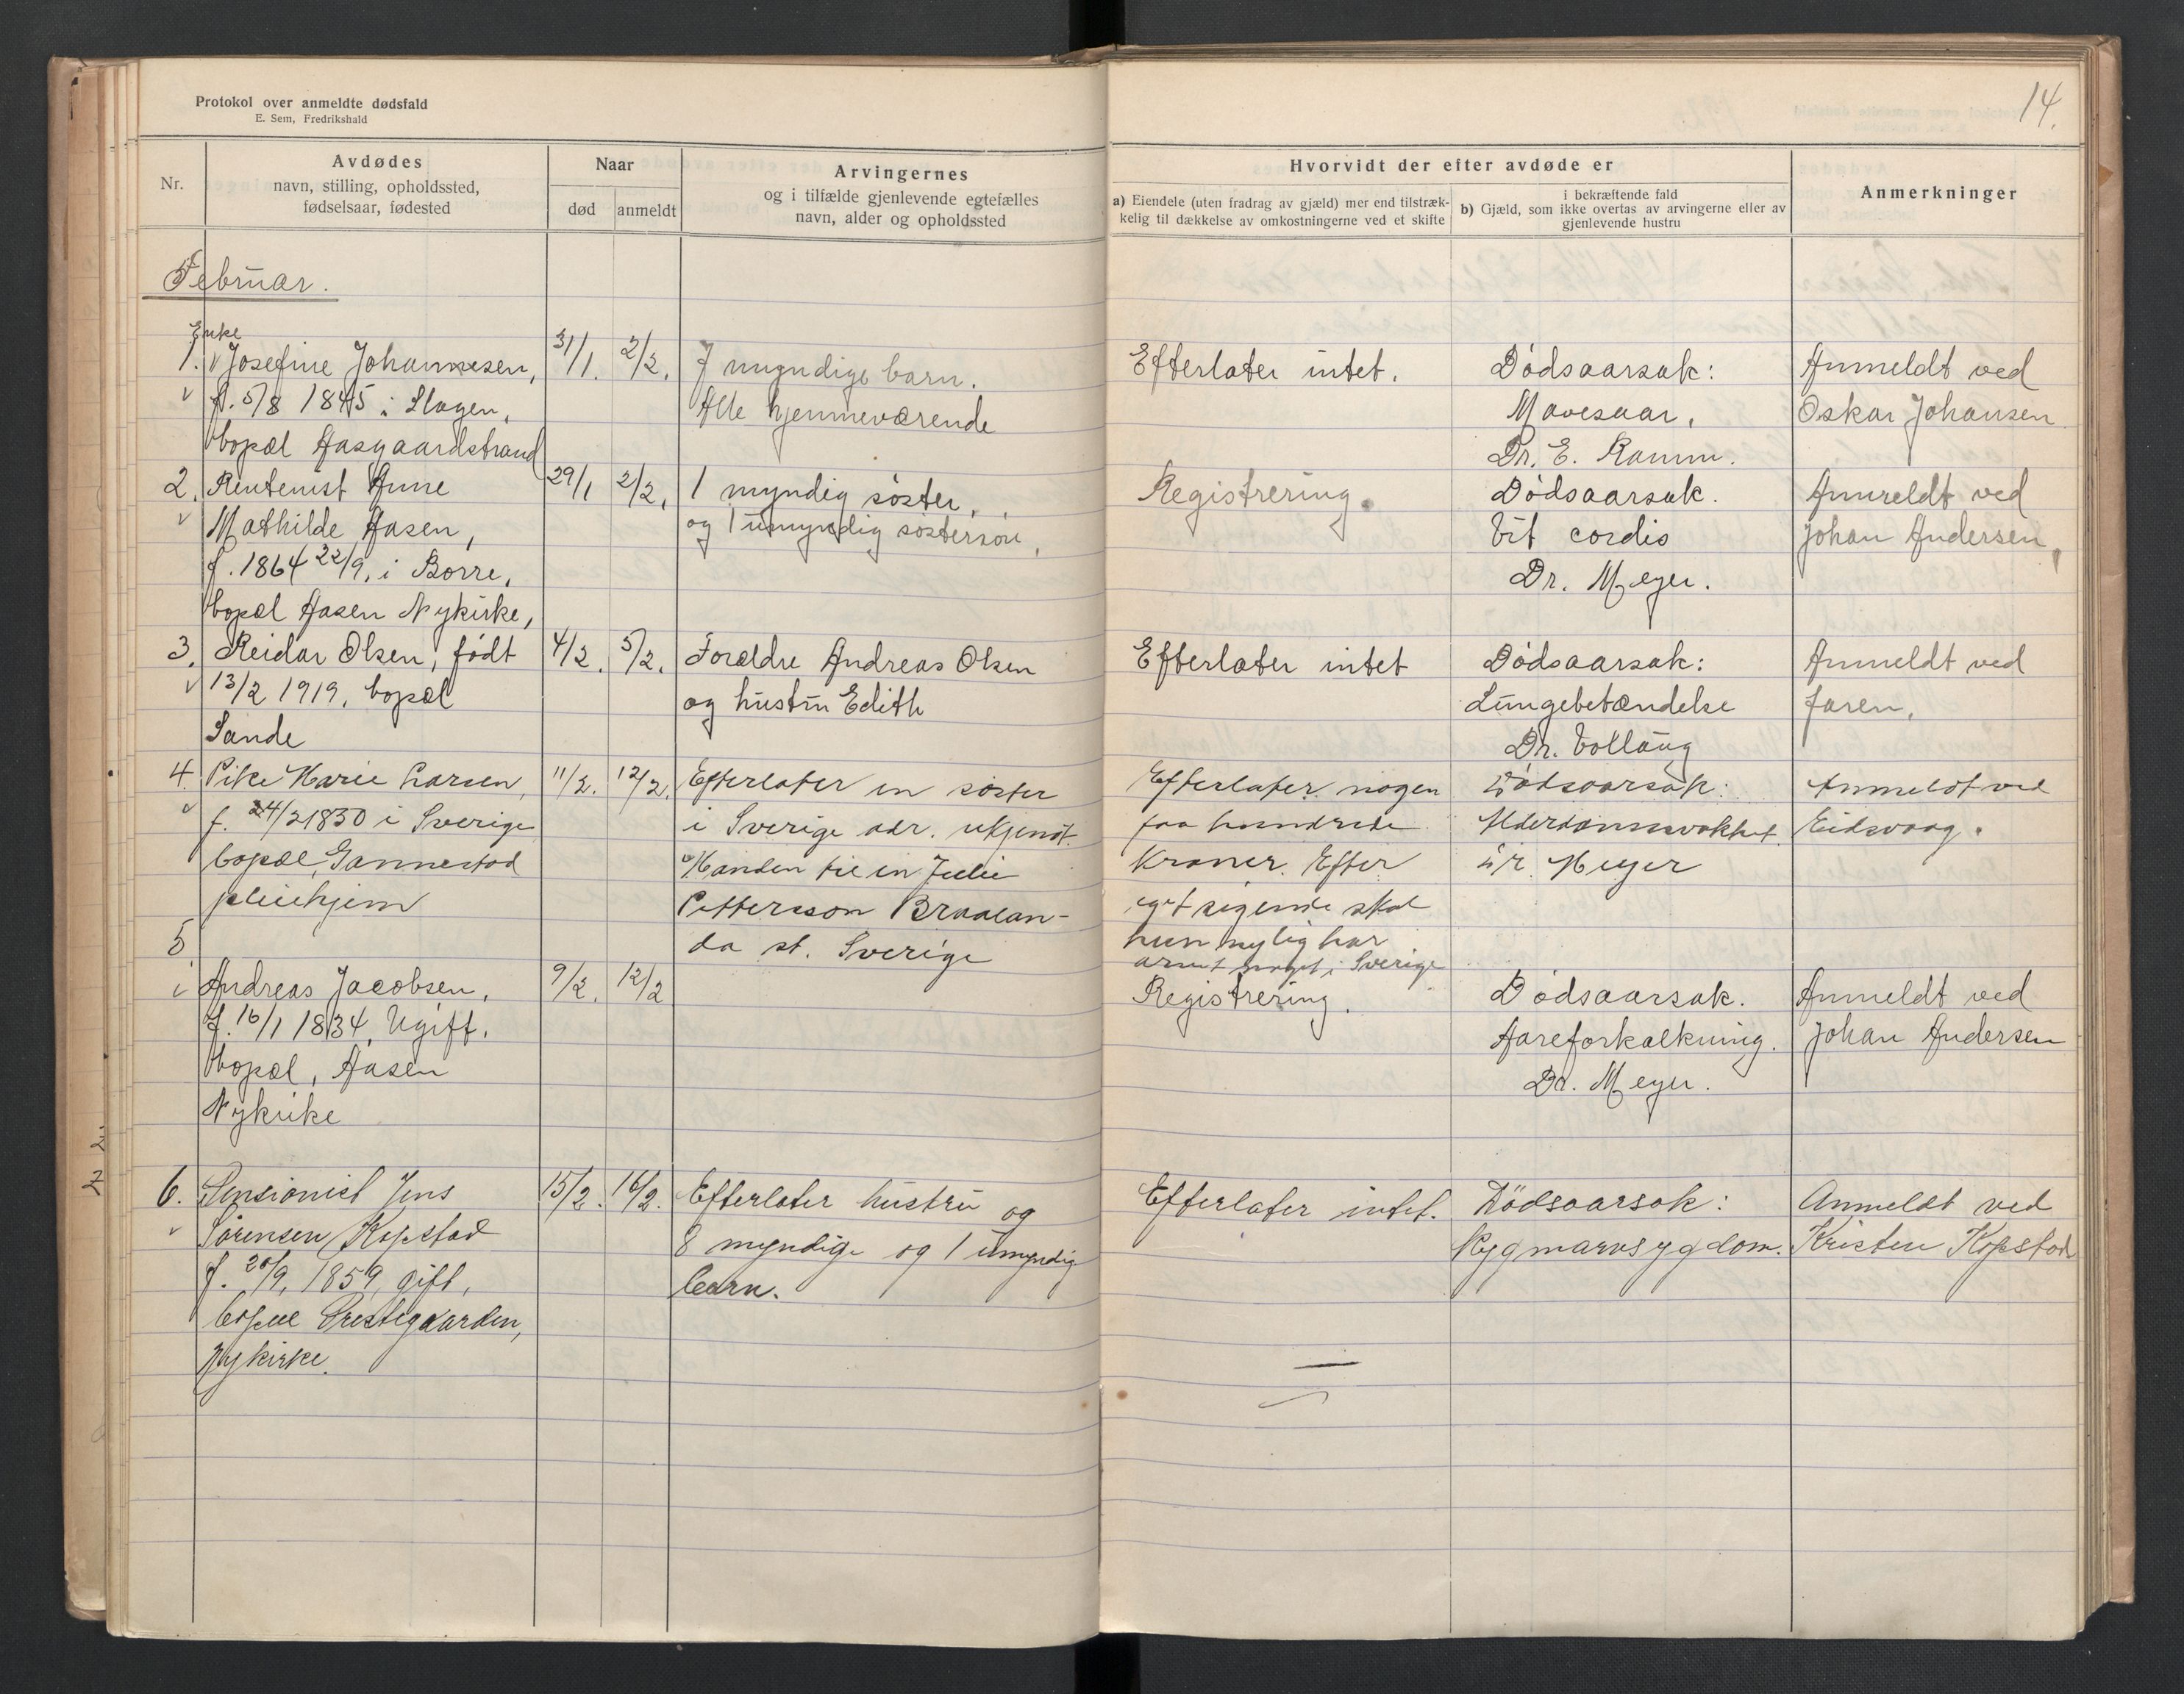 Protokol over anmeldte dødsfald
E. Sem, Fredrikshald
14.
Nr.
Avdødes
navn, stilling, opholdssted,
fødselsaar, fødested
Naar
død
anmeldt
Arvingernes
og i tilfælde gjenlevende egtefælles
navn, alder og opholdssted
Hvorvidt der efter avdøde er
a) Eiendele (uten fradrag av gjæld) mer end tilstræk-
kelig til dækkelse av omkostningerne ved et skifte
i bekræftende fald
b) Gjæld, som ikke overtas av arvingerne eller av
gjenlevende hustru
Anmerkninger
Februar.
Enke
1. Josefine Johannesen,
f. 5/8 1845 i Slagen,
bopæl Aasgaardstrand
31/1. 2/2.
7 myndige barn.
Alle hjemmeværende
Efterlater intet.
Dødsaarsak:
Mavesaar,
Dr. E. Ramm.
Anmeldt ved
Oskar Johansen
2. Rentenist Anne
Mathilde Aasen,
f. 1864 22/9, i Borre,
bopæl Aasen Nykirke,
29/1 2/2.
1 myndig søster,
og 1 umyndig søstersøn,
Registrering.
Dødsaarsak.
Vit cordis
Dr. Meyer.
Anmeldt ved
Johan Andersen,
3. Reidar Olsen, født
13/2 1919, bopæl
Sande
4/2. 5/2.
Forældre Andreas Olsen
og hustru Edith
Efterlater intet
Dødsaarsak:
Lungebetændelse
Dr. Vollaug
Anmeldt ved
faren.
4. Pike Marie Larsen,
f. 24/2 1830 i Sverige
bopæl Gannestad
pleiehjem
11/2. 12/2.
Efterlater en søster
i Sverige adr. ukjendt.
Manden til en Julie
Pettersson Braalan-
da st. Sverige
Efterlater nogen
faa hundrede
Kroner. Efter
eget sigende skal
hun nylig har
arvet noget i Sverige
Dødsaarsak:
Alderdomssvakhet
Dr. Meyer
Anmeldt ved
Eidsvaag.
5
Andreas Jacobsen,
f. 16/1 1834, Ugift.
bopæl, Aasen
Nykirke
9/2. 12/2
Registrering.
Dødsaarsak.
Aareforkalkning.
Dr. Meyer.
Anmeldt ved
Johan Andersen
6. Pensionist Jens
Sørensen Kopstad
f. 20/9, 1859, gift,
bopæl Prestegaarden,
Nykirke.
15/2. 16/2.
Efterlater hustru og
8 myndige og 1 umyndig
barn.
Efterlater intet.
Dødsaarsak:
Rygmarvsygdom.
Anmeldt ved
Kristen Kopstad